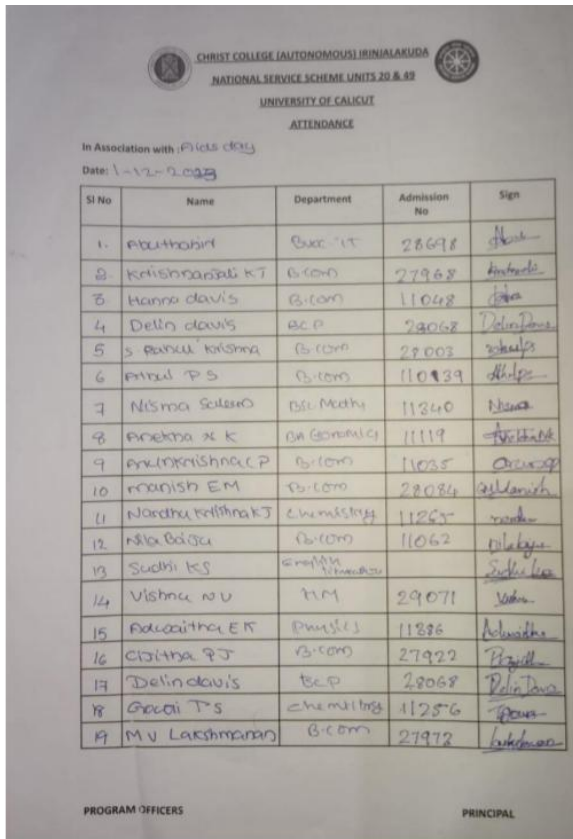 CHRIST COLLEGE (AUTONOMOUS) IRINJALAKUDA
NATIONAL SERVICE SCHEME UNITS 20 & 49
UNIVERSITY OF CALICUT
ATTENDANCE
In Association with : Aids day
Date: 1-12-2023
Sl No Name Department Admission No Sign
1. Abuthahir 28698
2 Krishnanjali KJ B.com 27968
3 Hanna davis B.com 11048
4 Delin davis BCP 28068 Delin Davis
5 S Rahul Krishna B.com 28003
6 Athul P S B.com
7 Nisma Saleem BSc Maths 11340
8 Anekha N K BA Economics 11119
9 Arunkrishna C P B.com 11035
10 Manish EM B.com 28084 Manish
11 Nandhu Krishna KJ Chemistry 11265
12 Nila Baiju B.com 11062
13 Sudhi KS English
14 Vishnu NV HM 29071
15 Adwaitha EK Physics 11886
16 PJ B.com 27922
17 Delin davis BCP 28068 Delin Davis
18 T S chemistry 11256
19 M V Lakshmanan B.com 27972
PROGRAM OFFICERS PRINCIPAL